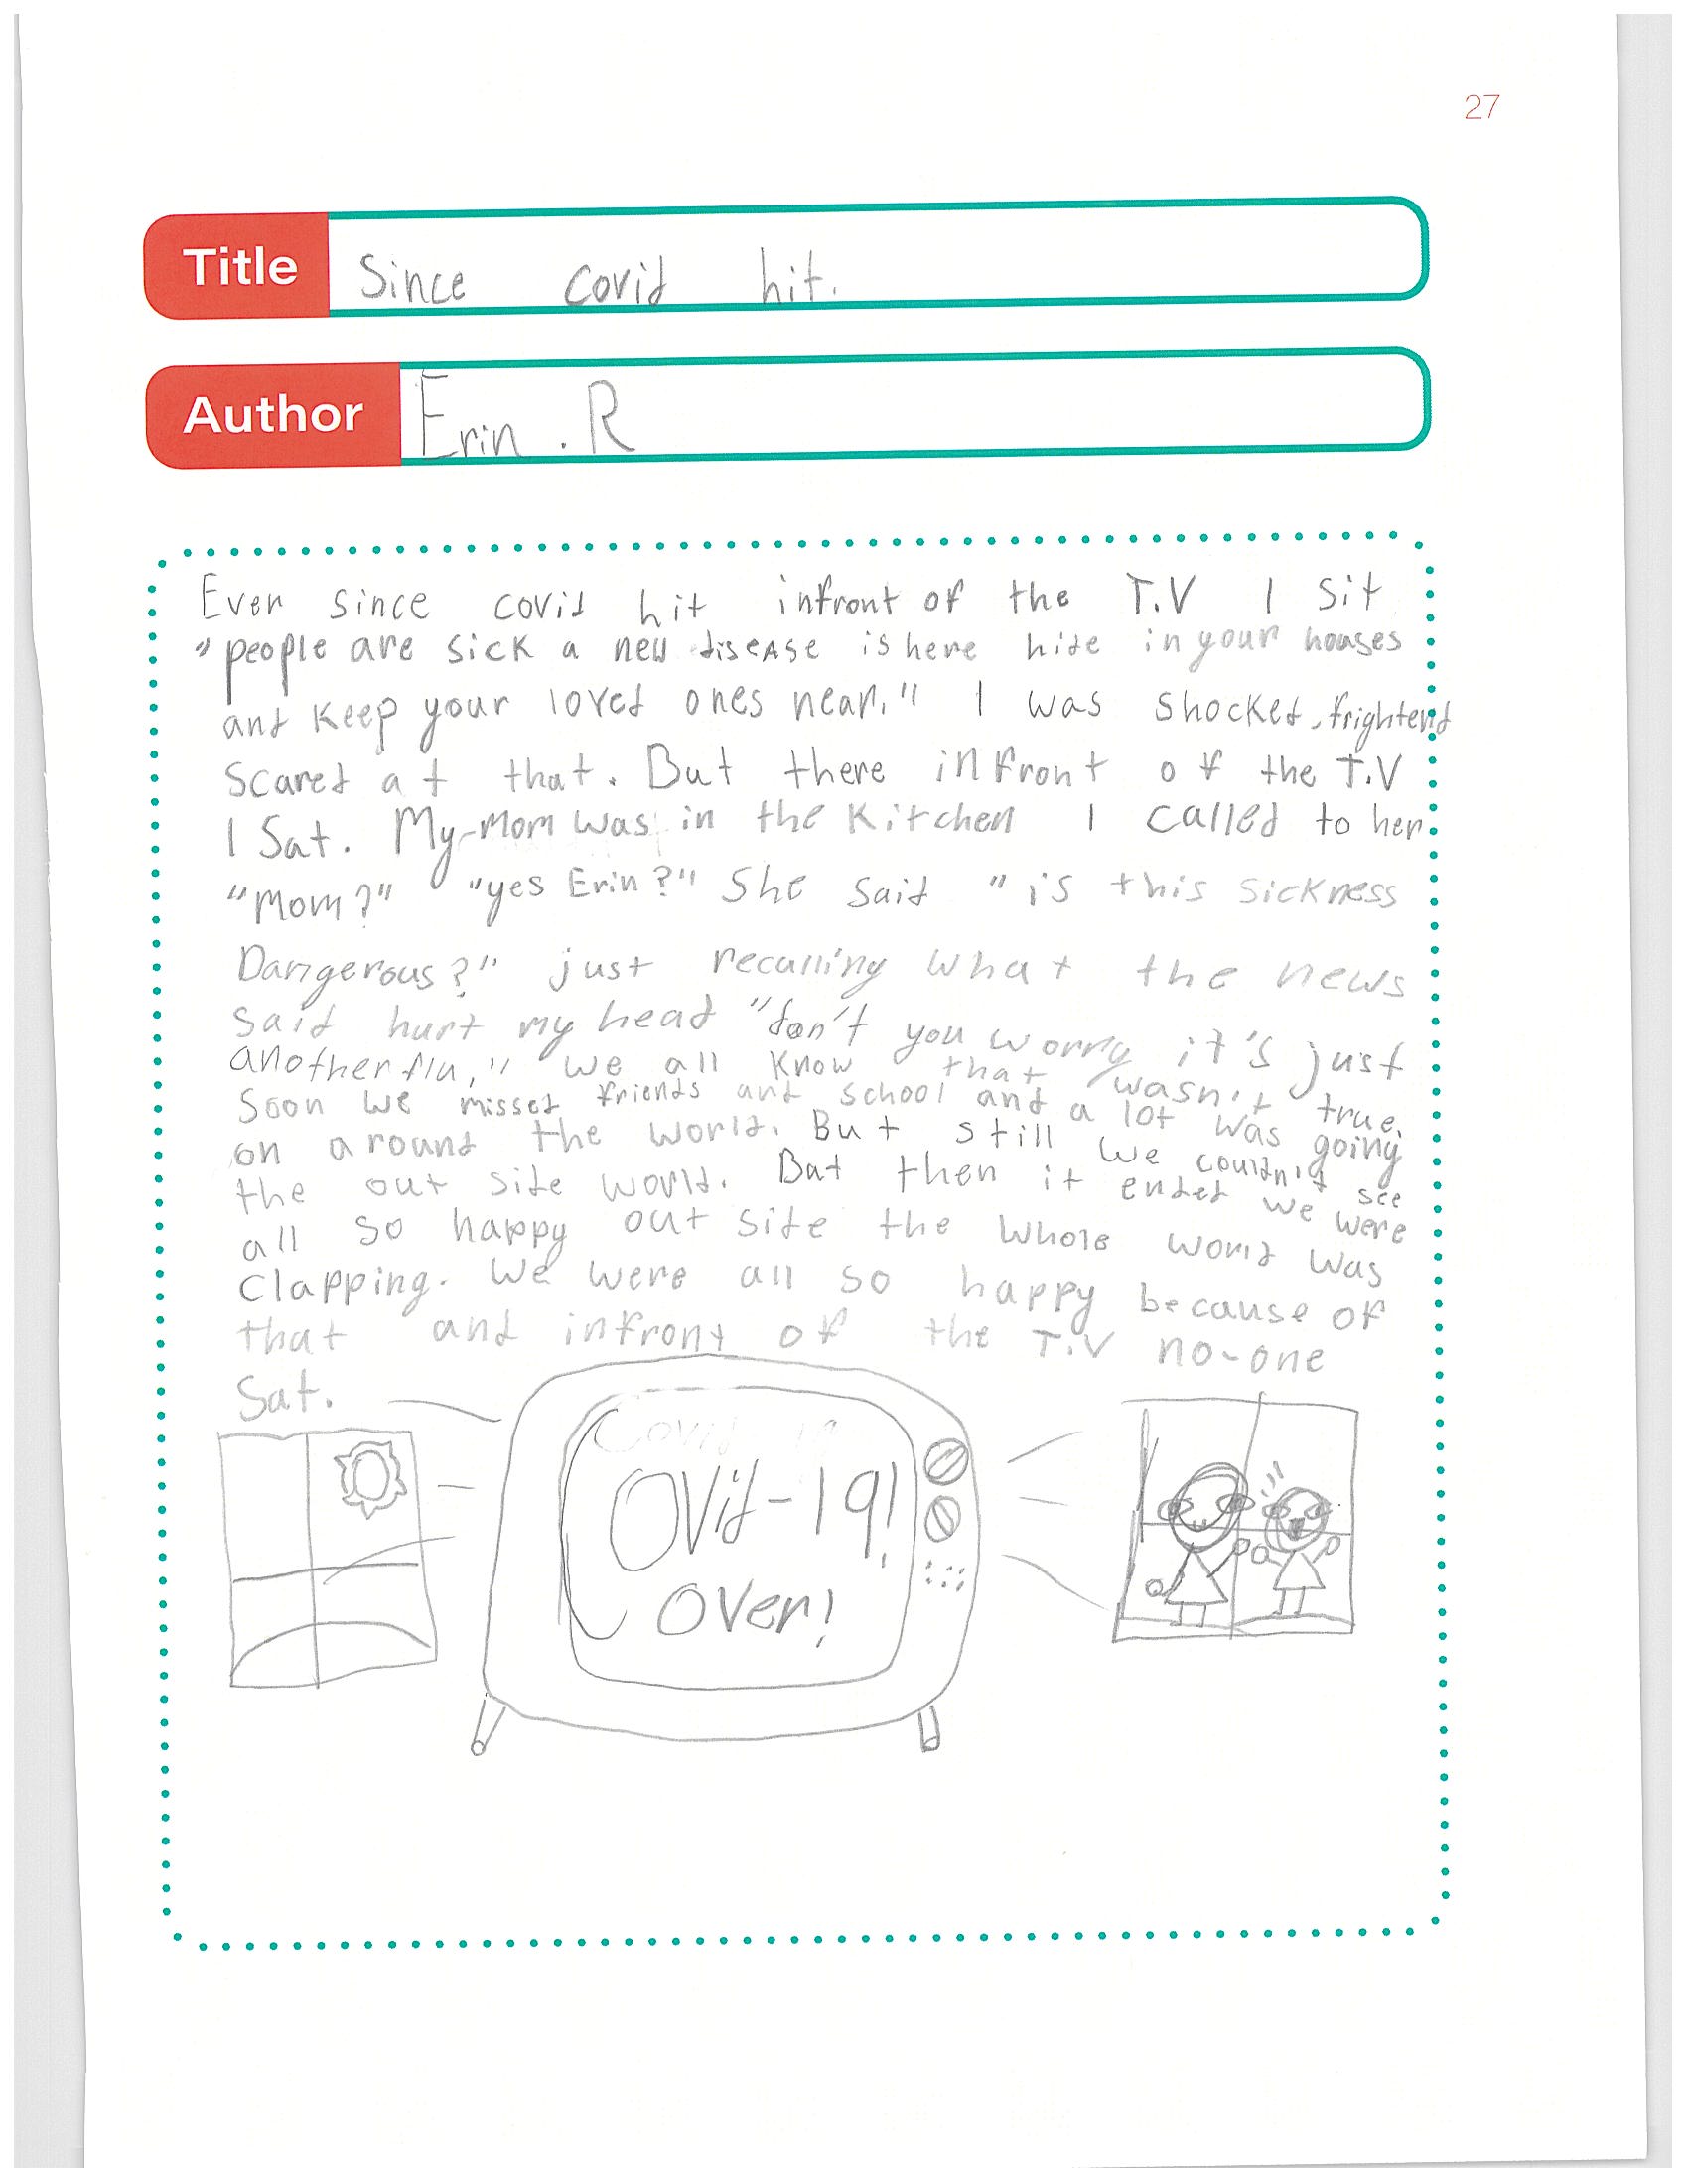 27
Title Since covid hit.
Author Erin . R
Ever since covid hit infront of the T.V I sit
"people are sick a new disease is here hide in your houses
and keep your loved ones near." I was shocked, frightend
scared at that. But there infront of the T.V
I Sat. My-Mom was in the kitchen I called to her
"Mom?" "yes Erin?" She said "is this sickness
Dangerous?" just recalling what the news
said hurt my head "don't you worry it's just
another flu," we all know that wasn't true.
Soon we missed friends and school and a lot was going
on around the world. But still we couldn't see
the out side world. But then it ended we were
all so happy out side the whole world was
Clapping. We were all so happy because of
that and infront of the T.V no-one
Sat.
Covid-19
COVid-19!
over!